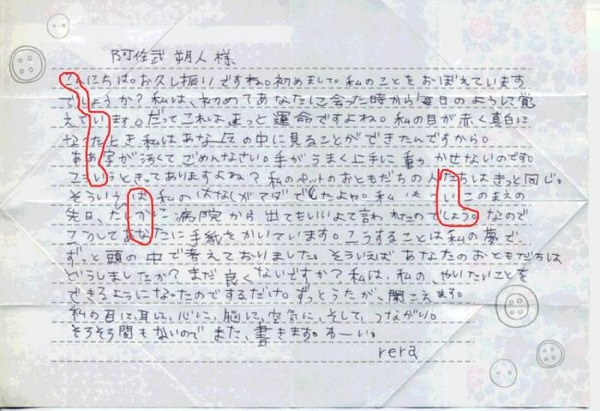 阿佐武 朔人 様
こんにちは。お久し振りですね。初めまして。私のことをおぼえています
でしょうか?私は、初めてあなたに会った時から毎日のようして覚
えています。だってこれはきっと運命ですよね。私の目が赤く真白に
なったとき、私はあなたの中に見ることができたんですから。
ああ字がうくてごめんなさい。手がうまく上手に動かせないのです。
こういうときってありますよね?私のペットのおともだちの人たちはきっと同じ。
そういうば私のはなしがまだでしたよね。私 ついこのまえの
先日、たしかに病院から出てもいいよて言われたのでしょう。なので
こうしてあなたに手紙をかいています。こうすることは私の夢で
ずっと頭の中で考えておりました。そういえばあなたのおともだちは
どうしましたか?まだ良くないですか?私は、私の、やりたいことを
できるようになったのですだけ。ずっとうたが、聞こえます。
私の目に、耳に、心に、脳に、空気に、そして、つながり。
そろそろ間もないのでまた、書きます。わーい。
rera